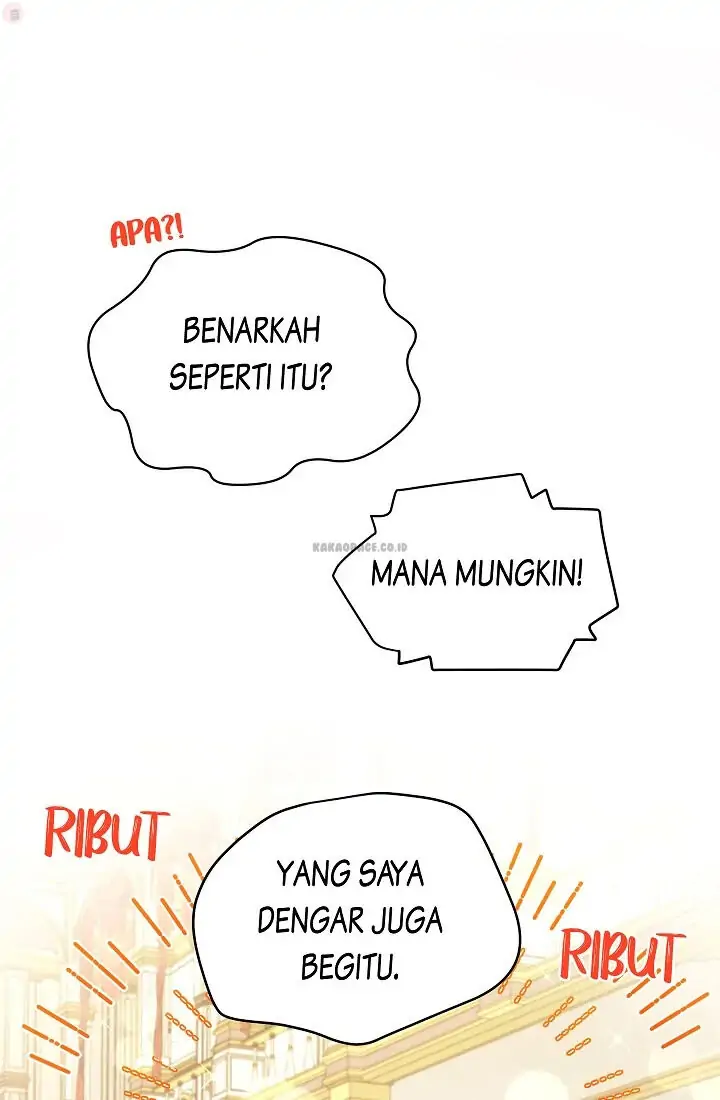 APA?!
BENARKAH
SEPERTI ITU?
KAKAOPAGE.CO.ID
MANA MUNGKIN!
RIBUT
YANG SAYA
DENGAR JUGA
BEGITU.
RIBUT